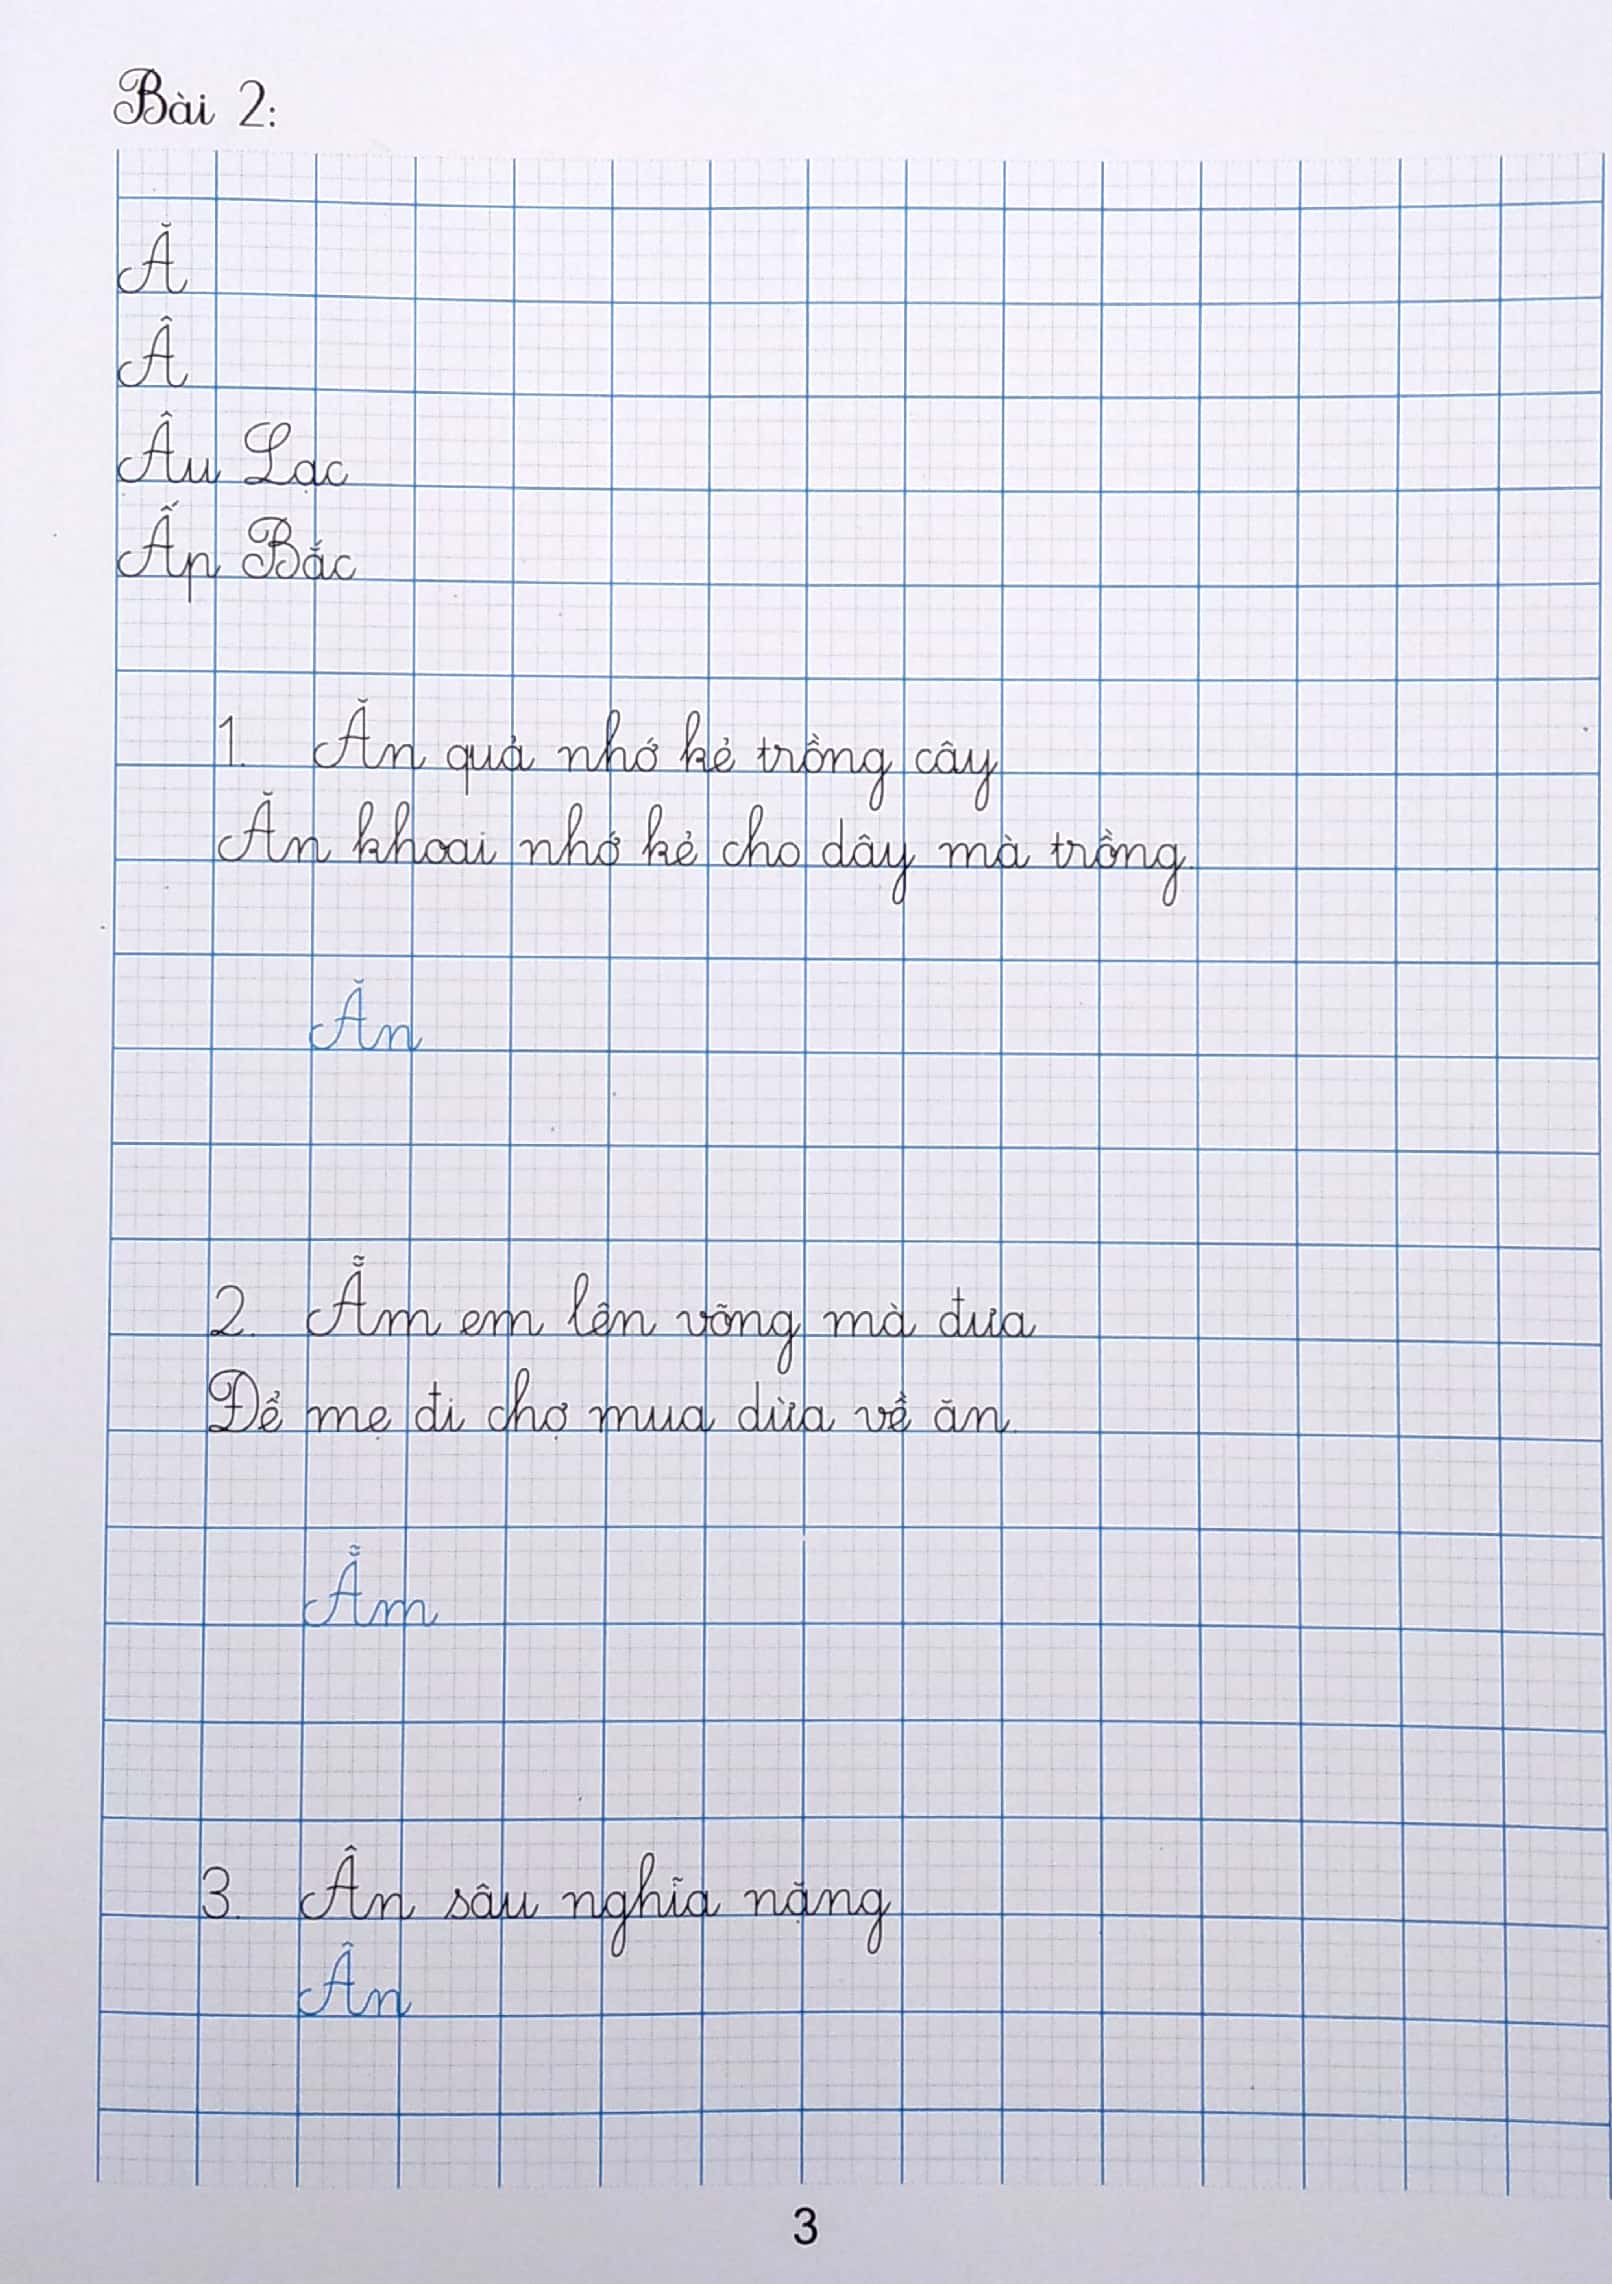 Bài 2:
Ă
Â
Âu Lạc
Ấp Bắc
1. Ăn quả nhớ kẻ trồng cây
Ăn khoai nhớ kẻ cho dây mà trồng.
Ăn
2. Ẵm em lên võng mà đưa
Để mẹ đi chợ mua dừa về ăn.
Ẵm
3. Ân sâu nghĩa nặng
Ân
3